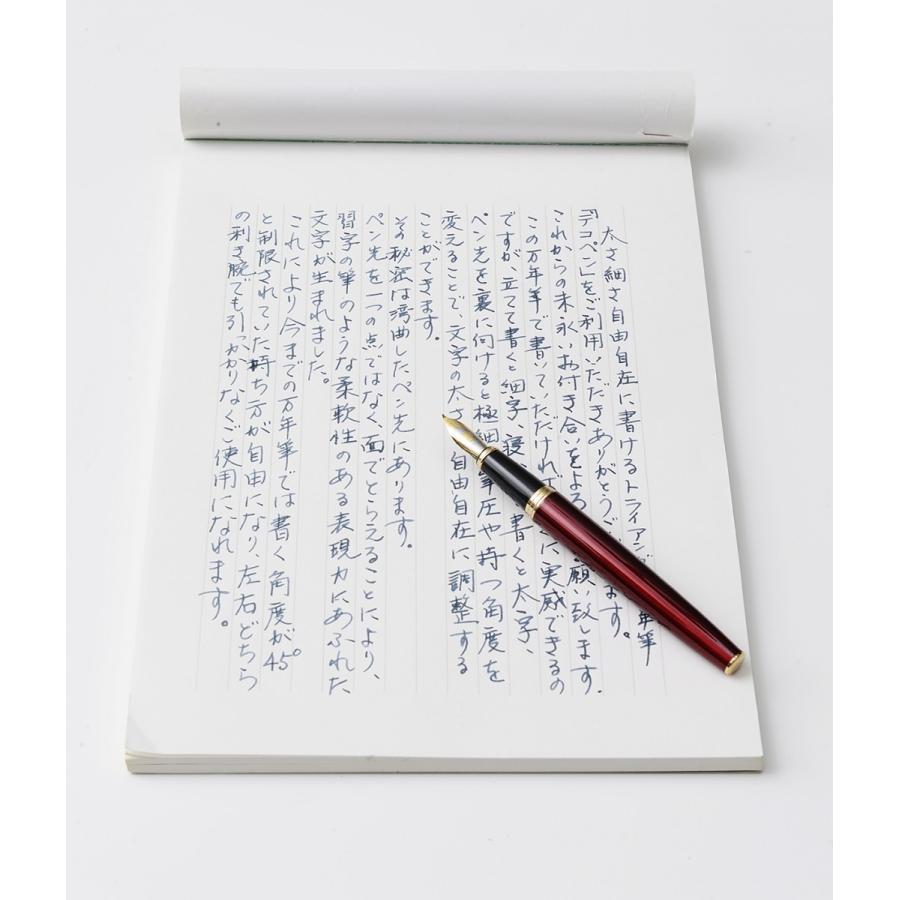 太さ細さ自由自在に書けるトライアン年筆
『デコペン』をご利用いただきありがとうござます。
これからの末永いお付き合いをよろ願い致します。
この万年筆で書いていただけれに実感できるの
ですが、立てて書くと細字、寝書くと太字、
ペン先を裏に向けると極細筆圧や持つ角度を
変えることで、文字の太さ自由自在に調整する
ことができます。
その秘密は湾曲したペン先にあります。
ペン先を一つの点ではなく、面でとらえることにより、
習字の筆のような柔軟性のある表現力にあふれた
文字が生まれました。
これにより今までの万年筆では書く角度が45°
と制限されていた持ち方が自由になり、左右どちら
の利き腕でも引っかかりなくご使用になれます。